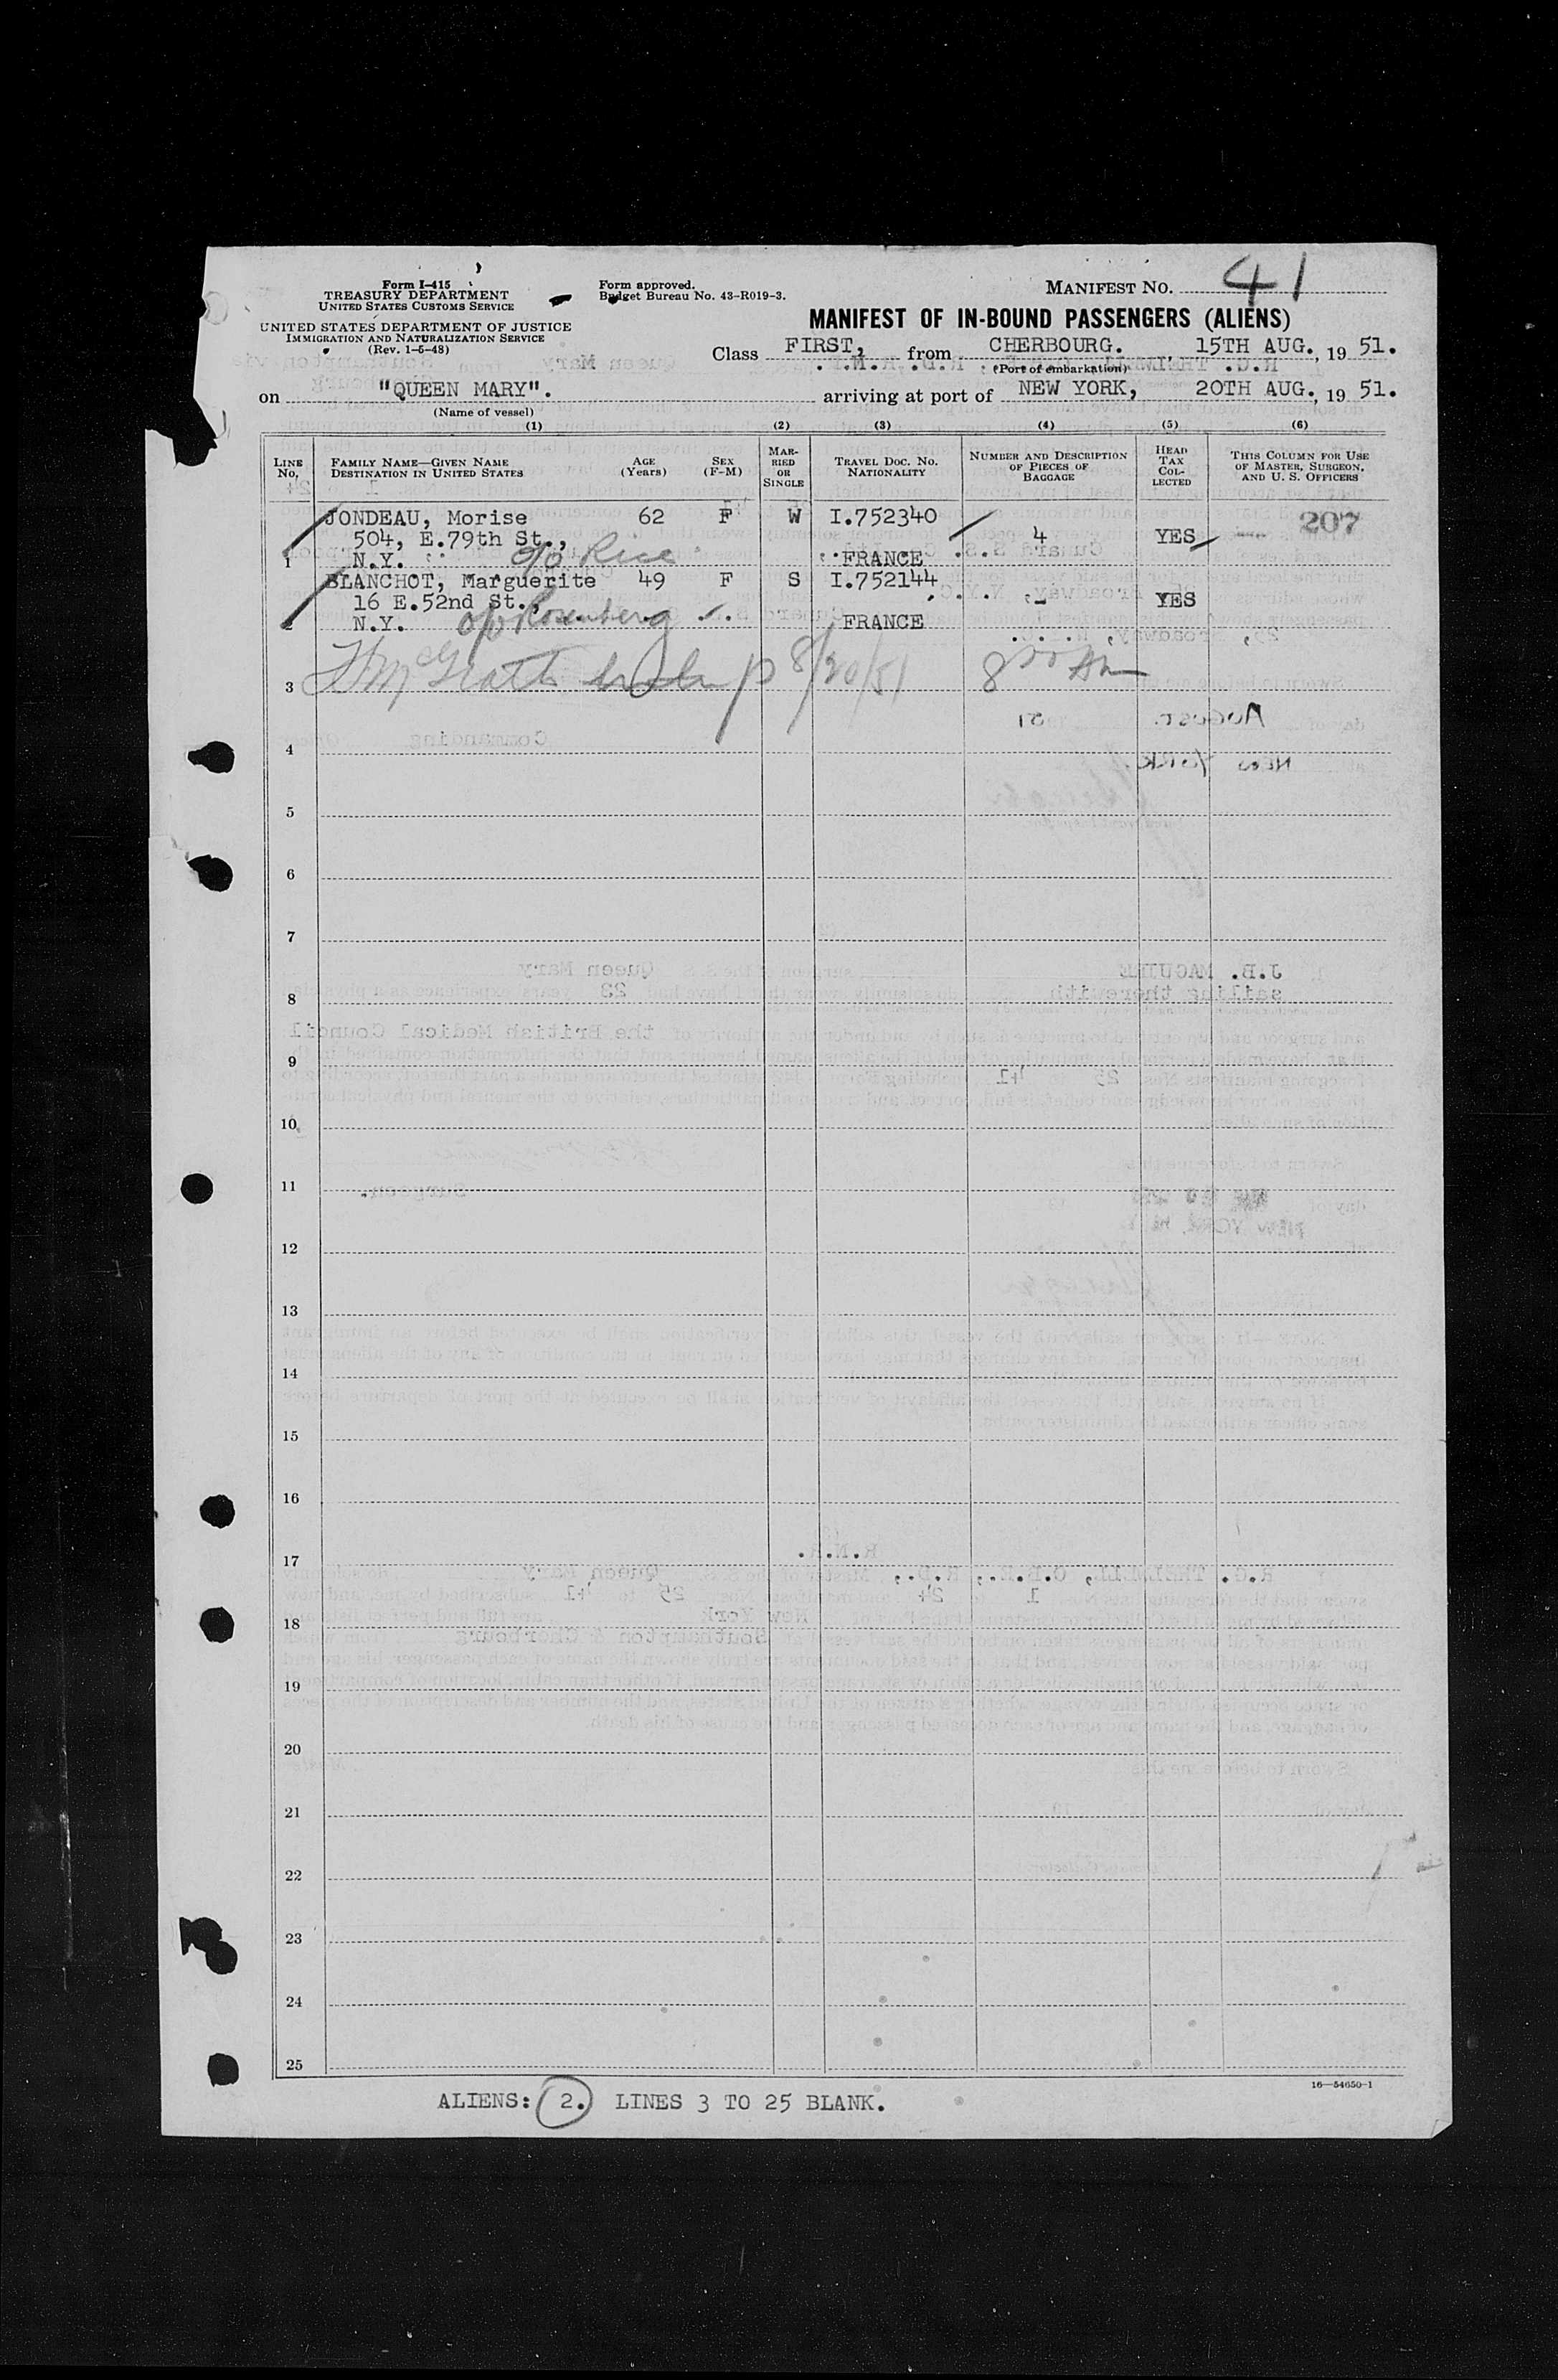 Form I-415
TREASURY DEPARTMENT
UNITED STATES CUSTOMS SERVICE
UNITED STATES DEPARTMENT OF JUSTICE
IMMIGRATION AND NATURALIZATION SERVICE
(Rev. 1-5-48)
Form approved.
Budget Bureau No. 43-R019-3.
MANIFEST NO. 41
MANIFEST OF IN-BOUND PASSENGERS (ALIENS)
Class FIRST, from CHERBOURG. , 15TH AUG. , 19 51.
(Port of embarkation)
on "QUEEN MARY". arriving at port of NEW YORK, 20TH AUG. , 19 51.
(Name of vessel)
(1) (2) (3) (4) (5) (6)
LINE No. FAMILY NAME—GIVEN NAME DESTINATION IN UNITED STATES AGE (Years) SEX (F-M) MARRIED OR SINGLE TRAVEL DOC. NO. NATIONALITY NUMBER AND DESCRIPTION OF PIECES OF BAGGAGE HEAD TAX COLLECTED THIS COLUMN FOR USE OF MASTER, SURGEON, AND U. S. OFFICERS
JONDEAU, Morise 62 F W I.752340 207
504, E.79th St., 4 YES
1 N.Y. c/o Rice FRANCE
BLANCHOT, Marguerite 49 F S I.752144
16 E.52nd St., - YES
2 N.Y. c/o Rosenberg FRANCE
3 McGrath 8/20/51
4
5
6
7
8
9
10
11
12
13
14
15
16
17
18
19
20
21
22
23
24
25
16—54650-1
ALIENS: 2. LINES 3 TO 25 BLANK.